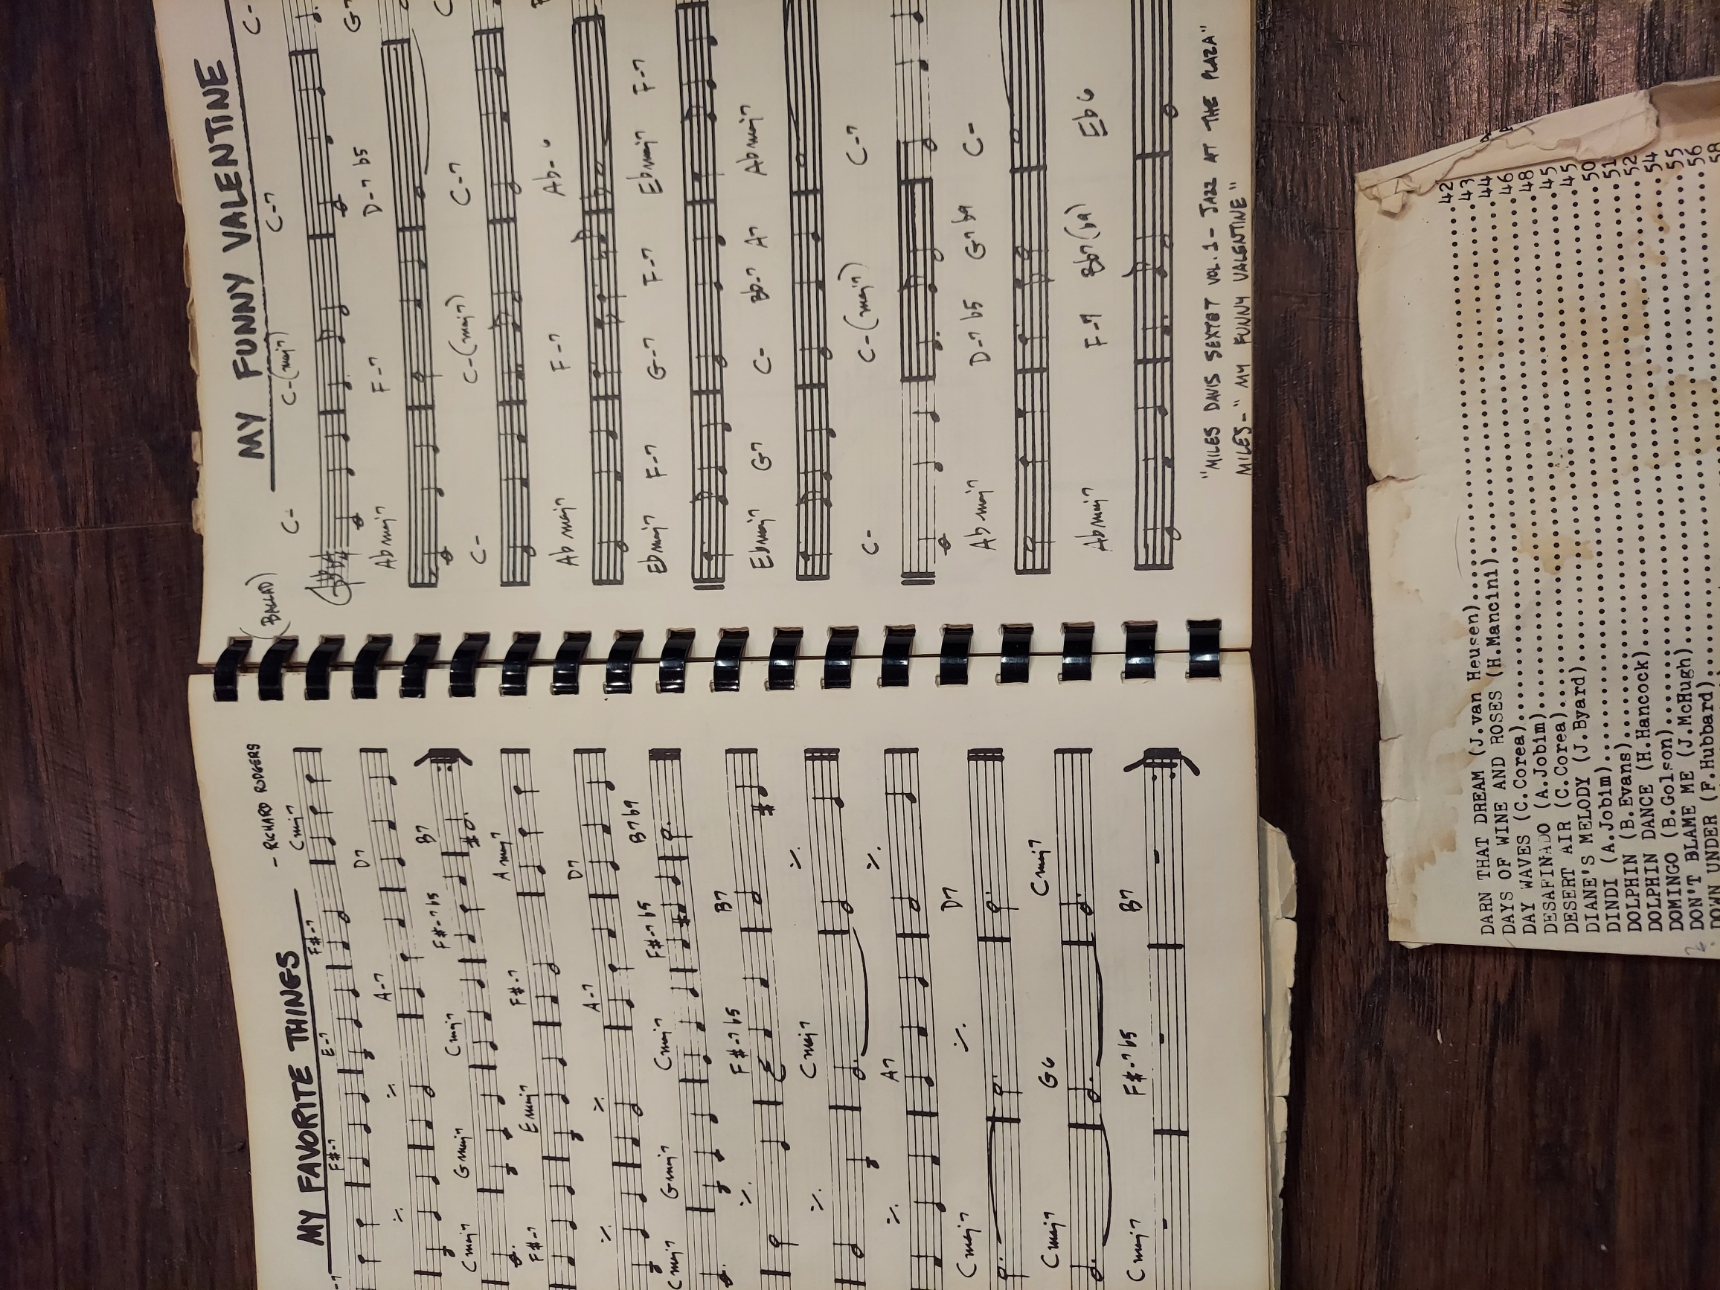 MY FAVORITE THINGS
- RICHARD RODGERS
F#-7 E-7 F#-7 Cmaj7
A-7 D7
Cmaj7 Gmaj7 Cmaj7 F#-7b5 B7
F#-7 Emaj7 F#-7 Amaj7
A-7 D7
Cmaj7 Gmaj7 Cmaj7 F#-7b5 B7b9
F#-7b5 B7
Cmaj7
A7
Cmaj7 D7
Cmaj7 G6 Cmaj7
Cmaj7 F#-7b5 B7
MY FUNNY VALENTINE
(BALLAD)
C- C-(maj7) C-7
Abmaj7 F-7 D-7b5
C- C-(maj7) C-7
Abmaj7 F-7 Ab-6
Ebmaj7 F-7 G-7 F-7 Ebmaj7 F-7
Ebmaj7 G7 C- Bb-7 A7 Abmaj7
C- C-(maj7) C-7
Abmaj7 D-7b5 G7b9 C-
Abmaj7 F-7 Bb7(b9) Eb6
"MILES DAVIS SEXTET VOL. 1 - JAZZ AT THE PLAZA"
MILES - "MY FUNNY VALENTINE"
DARN THAT DREAM (J.van Heusen)..........42
DAYS OF WINE AND ROSES (H.Mancini)..........43
DAY WAVES (C.Corea)..........44
DESAFINADO (A.Jobim)..........46
DESERT AIR (C.Corea)..........48
DIANE'S MELODY (J.Byard)..........45
DINDI (A.Jobim)..........45
DOLPHIN (B.Evans)..........50
DOLPHIN DANCE (H.Hancock)..........51
DOMINGO (B.Golson)..........52
DON'T BLAME ME (J.McHugh)..........54
DOWN UNDER (F.Hubbard)..........55
56
58